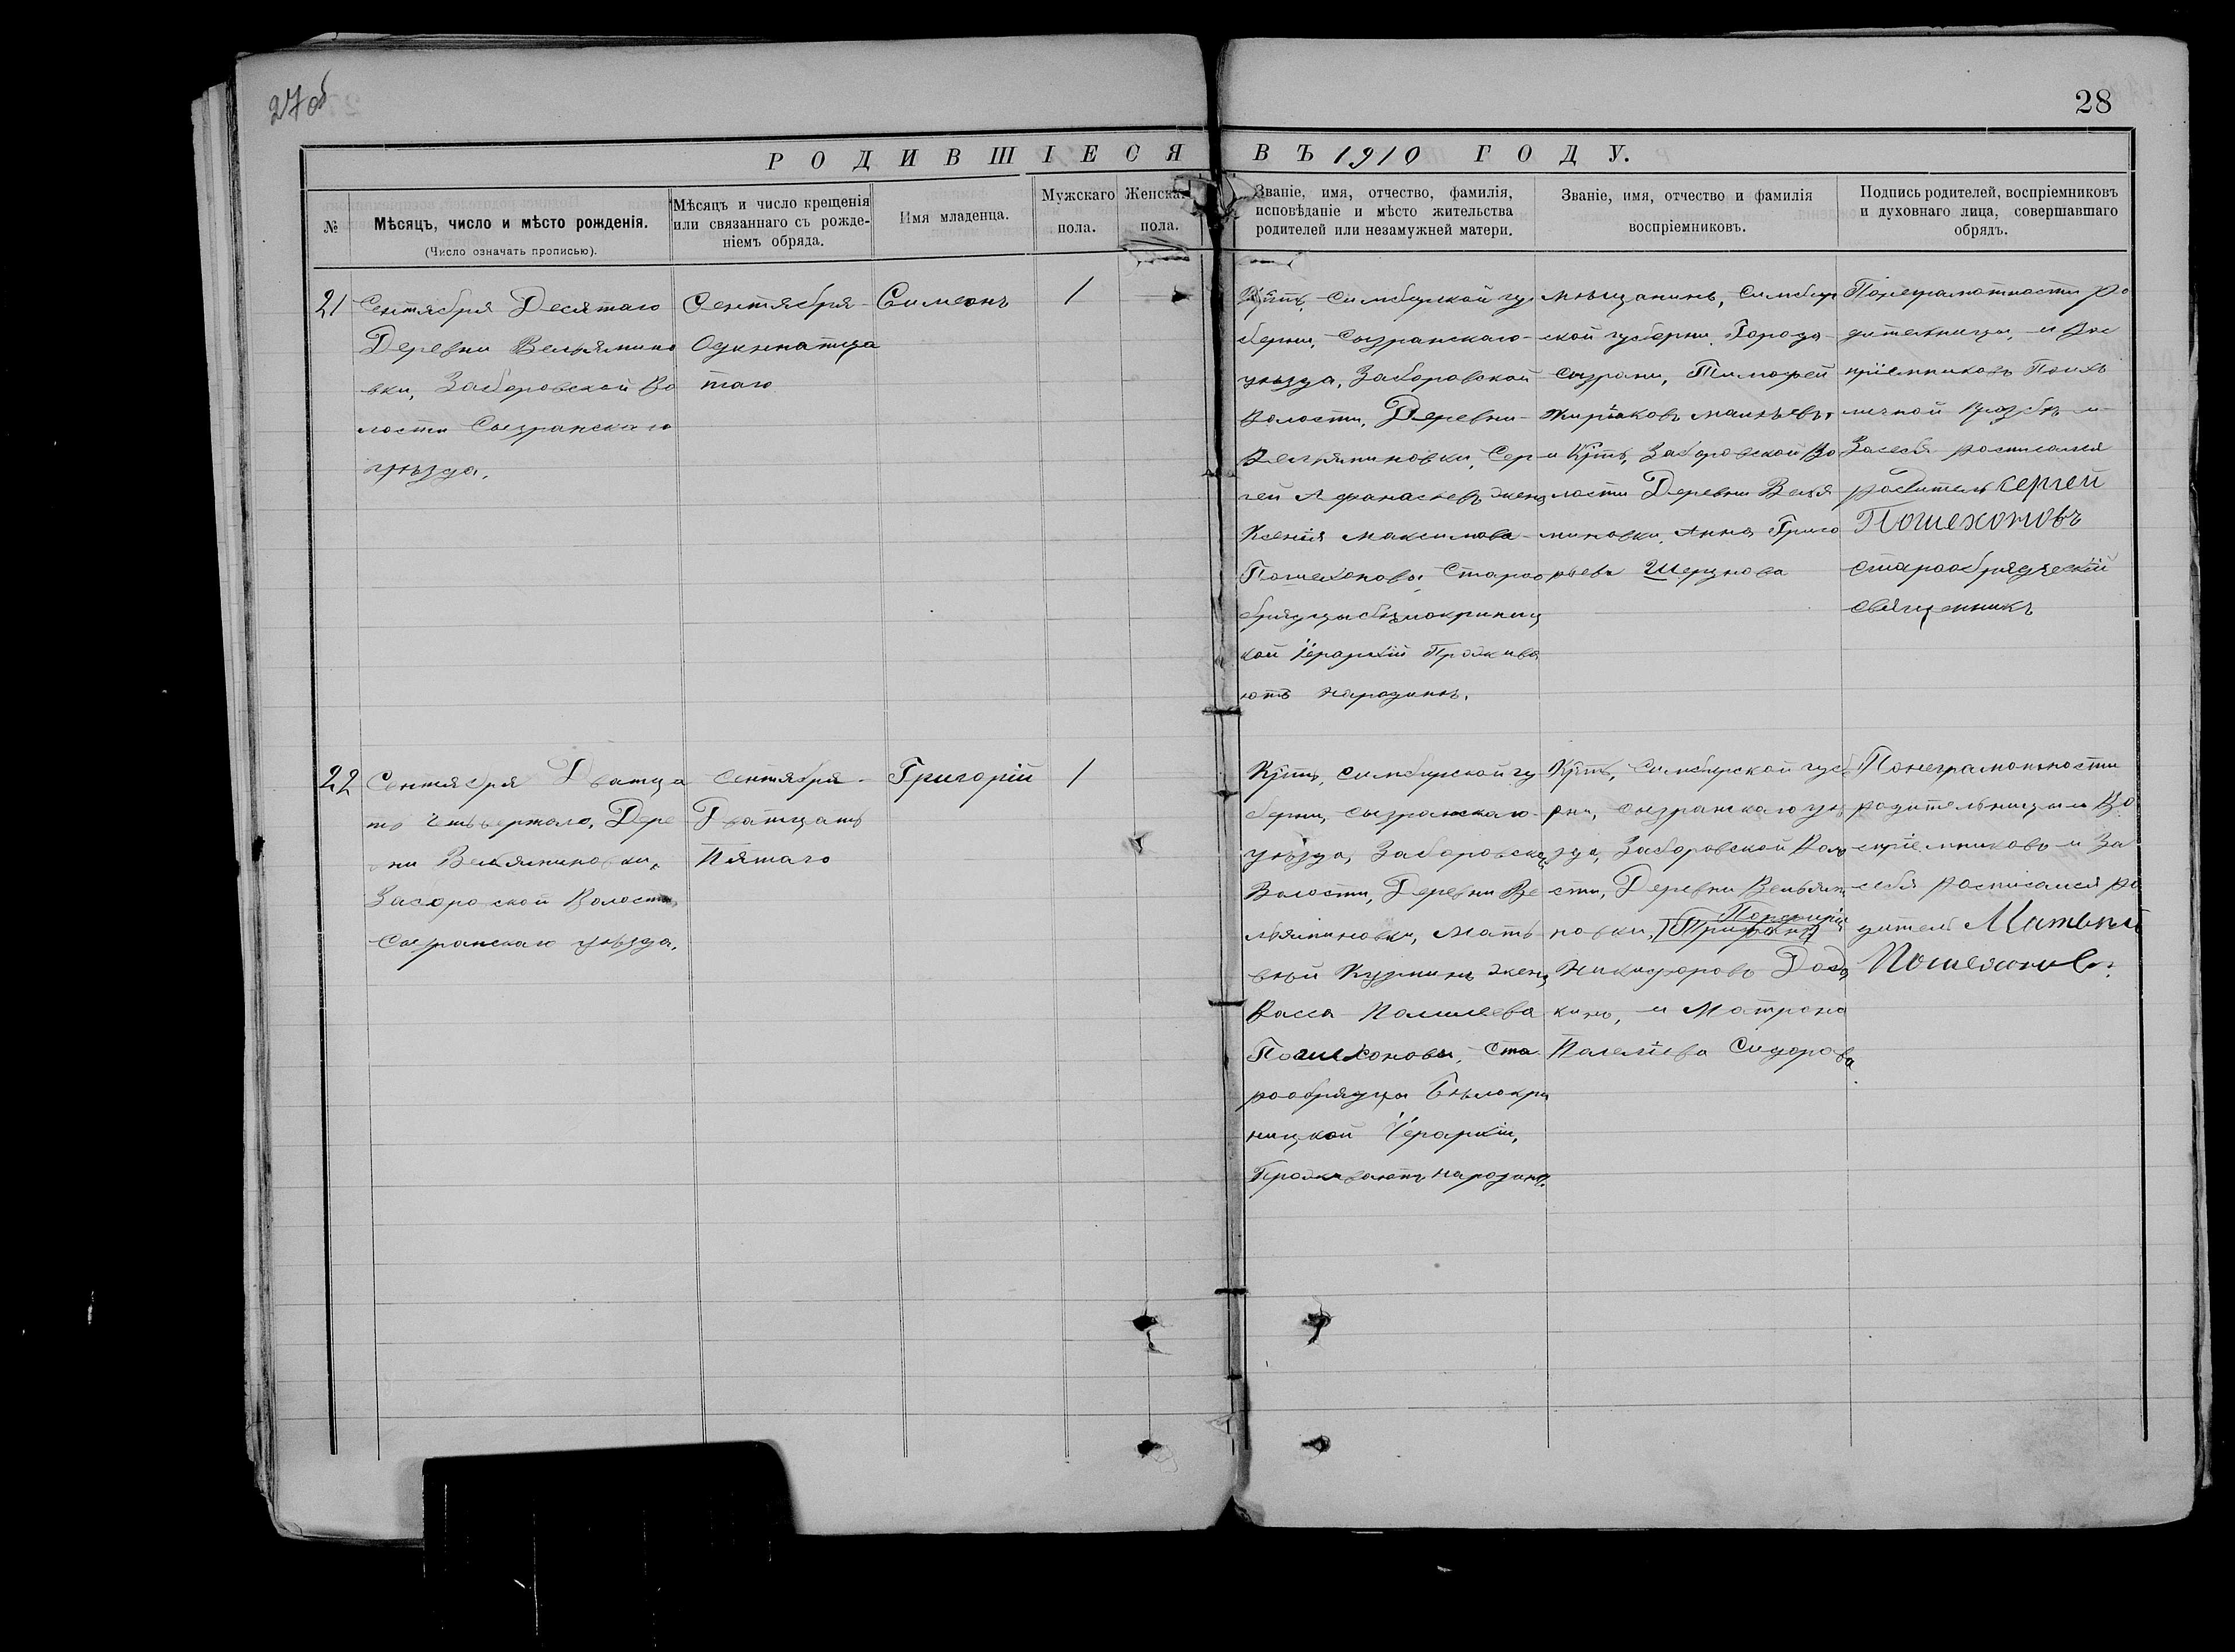 27об
28
РОДИВШІЕСЯ ВЪ 1910 ГОДУ.
№
Мѣсяцъ, число и мѣсто рожденія.
(Число означать прописью).
Мѣсяцъ и число крещенія
или связаннаго съ рожде-
ніемъ обряда.
Имя младенца.
Мужскаго
пола.
Женска
пола.
Званіе, имя, отчество, фамилія,
исповѣданіе и мѣсто жительства
родителей или незамужней матери.
Званіе, имя, отчество и фамилія
воспріемниковъ.
Подпись родителей, воспріемниковъ
и духовнаго лица, совершавшаго
обрядъ.
21
Сентября Десятаго
Деревни Вельямино
вки, Заборовской Во
лости Сызранскаго
уѣзда.
Сентября
Одиннатца
таго
Симеонъ
1
Крͭнъ, Симбирской гу
берни, Сызранскаго
уѣзда, Заборовской
Волости, Деревни
Вельяминовки, Сер
гей Афанасьевъ жена
Ксенія Максимова
Пошехоновы, Староо
брядцы бѣлокриниц
кой Іерархіи Прожива
ютъ
Мѣщанинъ, Симбир
ской губерни, Города
Сызрани, Тимофей
и Крͭнъ, Заборовской Во
лости Деревни Велья
миновки, Анна Григо
рьева
Понеграмотности ро
дительницы, и Вос
пріемниковъ Поихъ
личной прозбѣ и
Засебя росписался
родитель Сергей
Пошехоновъ
старообрядческій
священникъ
22
Сентября Дватца
ть Четвертаго, Дере
вни Вельяминовки,
Заборовской Волости
Сызранскаго уѣзда.
Сентября
Дватцать
Пятаго
Григорій
1
Крͭнъ, Симбирской гу
берни, Сызранскаго
уѣзда, Заборовской
Волости, Деревни Ве
льяминовки, Мать
вѣй Кузминъ жена
Васса
Пошехоновы, Ста
рообрядцы Бѣлокри
ницкой Іерархіи,
Проживаютъ
Крͭнъ, Симбирской губ
рни, Сызранскаго уѣ
зда, Заборовской Воло
сти, Деревни Вельями
новки,
Никифоровъ
и Матрона
Сидорова
Понеграмотности
родительницы и Во
спріемниковъ и За
себя росписался ро
дитель Матвѣй
Пошехоновъ.